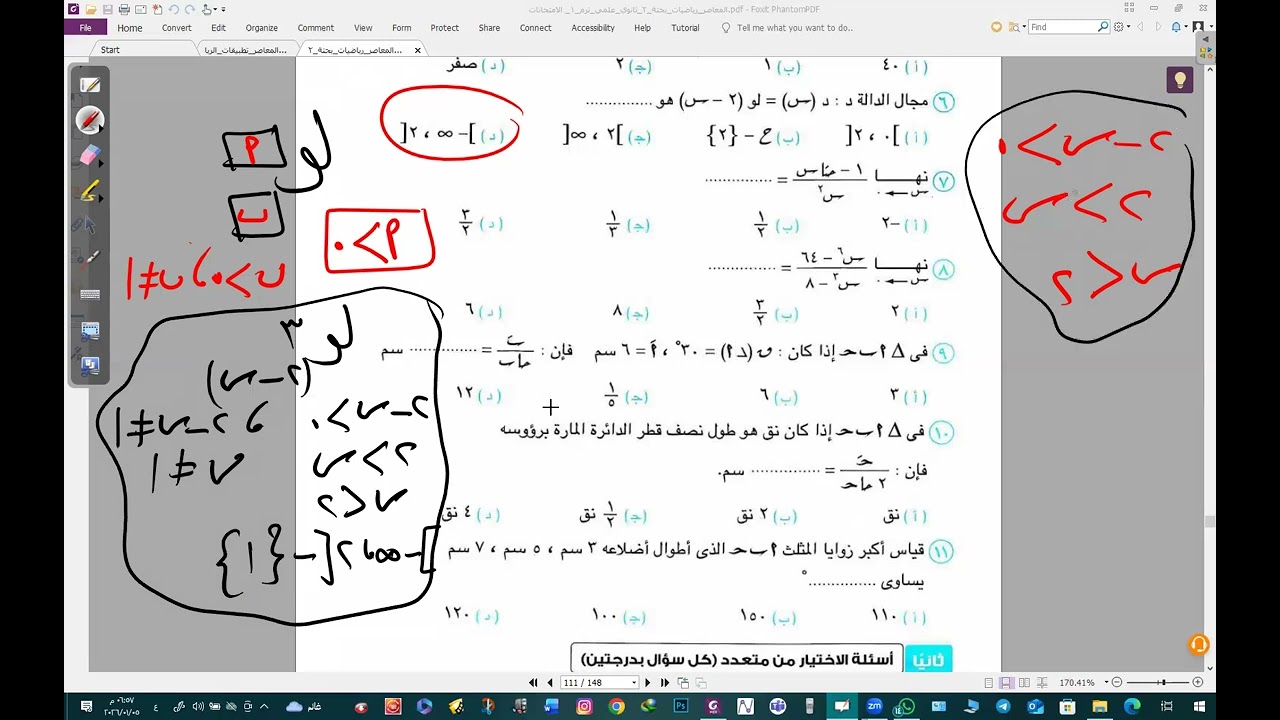 المعاصر_رياضيات_بحتة_٢_ثانوى_علمى_ترم_١_الامتحانات.pdf - Foxit PhantomPDF
File Home Convert Edit Organize Comment View Form Protect Share Connect Accessibility Help Tutorial Tell me what you want to do.. Find
Start المعاصر_تطبيقات_الريا... المعاصر_رياضيات_بحتة_٢...
(أ) ٤٠ (ب) ١ (جـ) ٢ (د) صفر
٦ مجال الدالة د : د (س) = لو (٢ - س) هو ..............
(أ) ]٠ ، ٢[ (ب) ع - {٢} (جـ) ]٢ ، ∞[ (د) ]- ∞ ، ٢[
٧ نهــــا س ← ٠ (١ - حتا س) / س٢ = ..............
(أ) -٢ (ب) ١/٢ (جـ) ١/٣ (د) ٣/٢
٨ نهــــا س ← ٠ (س٦ - ٦٤) / (س٣ - ٨) = ..............
(أ) ٢ (ب) ٣/٢ (جـ) ٨ (د) ٦
٩ فى Δ ا ب ح إذا كان : ق (د ا) = ٣٠° ، اَ = ٦ سم فإن : بَ / حا ب = .............. سم
(أ) ٣ (ب) ٦ (جـ) ١/٥ (د) ١٢
١٠ فى Δ ا ب ح إذا كان نق هو طول نصف قطر الدائرة المارة برؤوسه
فإن : حَ / ٢ حا ح = .............. سم.
(أ) نق (ب) ٢ نق (جـ) ١/٢ نق (د) ٤ نق
١١ قياس أكبر زوايا المثلث ا ب ح الذى أطوال أضلاعه ٣ سم ، ٥ سم ، ٧ سم
يساوى ..............°
(أ) ١١٠ (ب) ١٥٠ (جـ) ١٠٠ (د) ١٢٠
ثانيًا أسئلة الاختيار من متعدد (كل سؤال بدرجتين)
٢ - س > ٠
٢ > س
س < ٢
لو
ا
ب
ا > ٠
ب > ٠ ، ب ≠ ١
لو ٣
(٢ - س)
٢ - س > ٠ ، ٢ - س ≠ ١
٢ > س س ≠ ١
س < ٢
]- ∞ ، ٢[ - {١}
111 / 148 170.41%
غائم ع ٠٦:٥٧ م
٢٠٢٦/٠١/٠٥